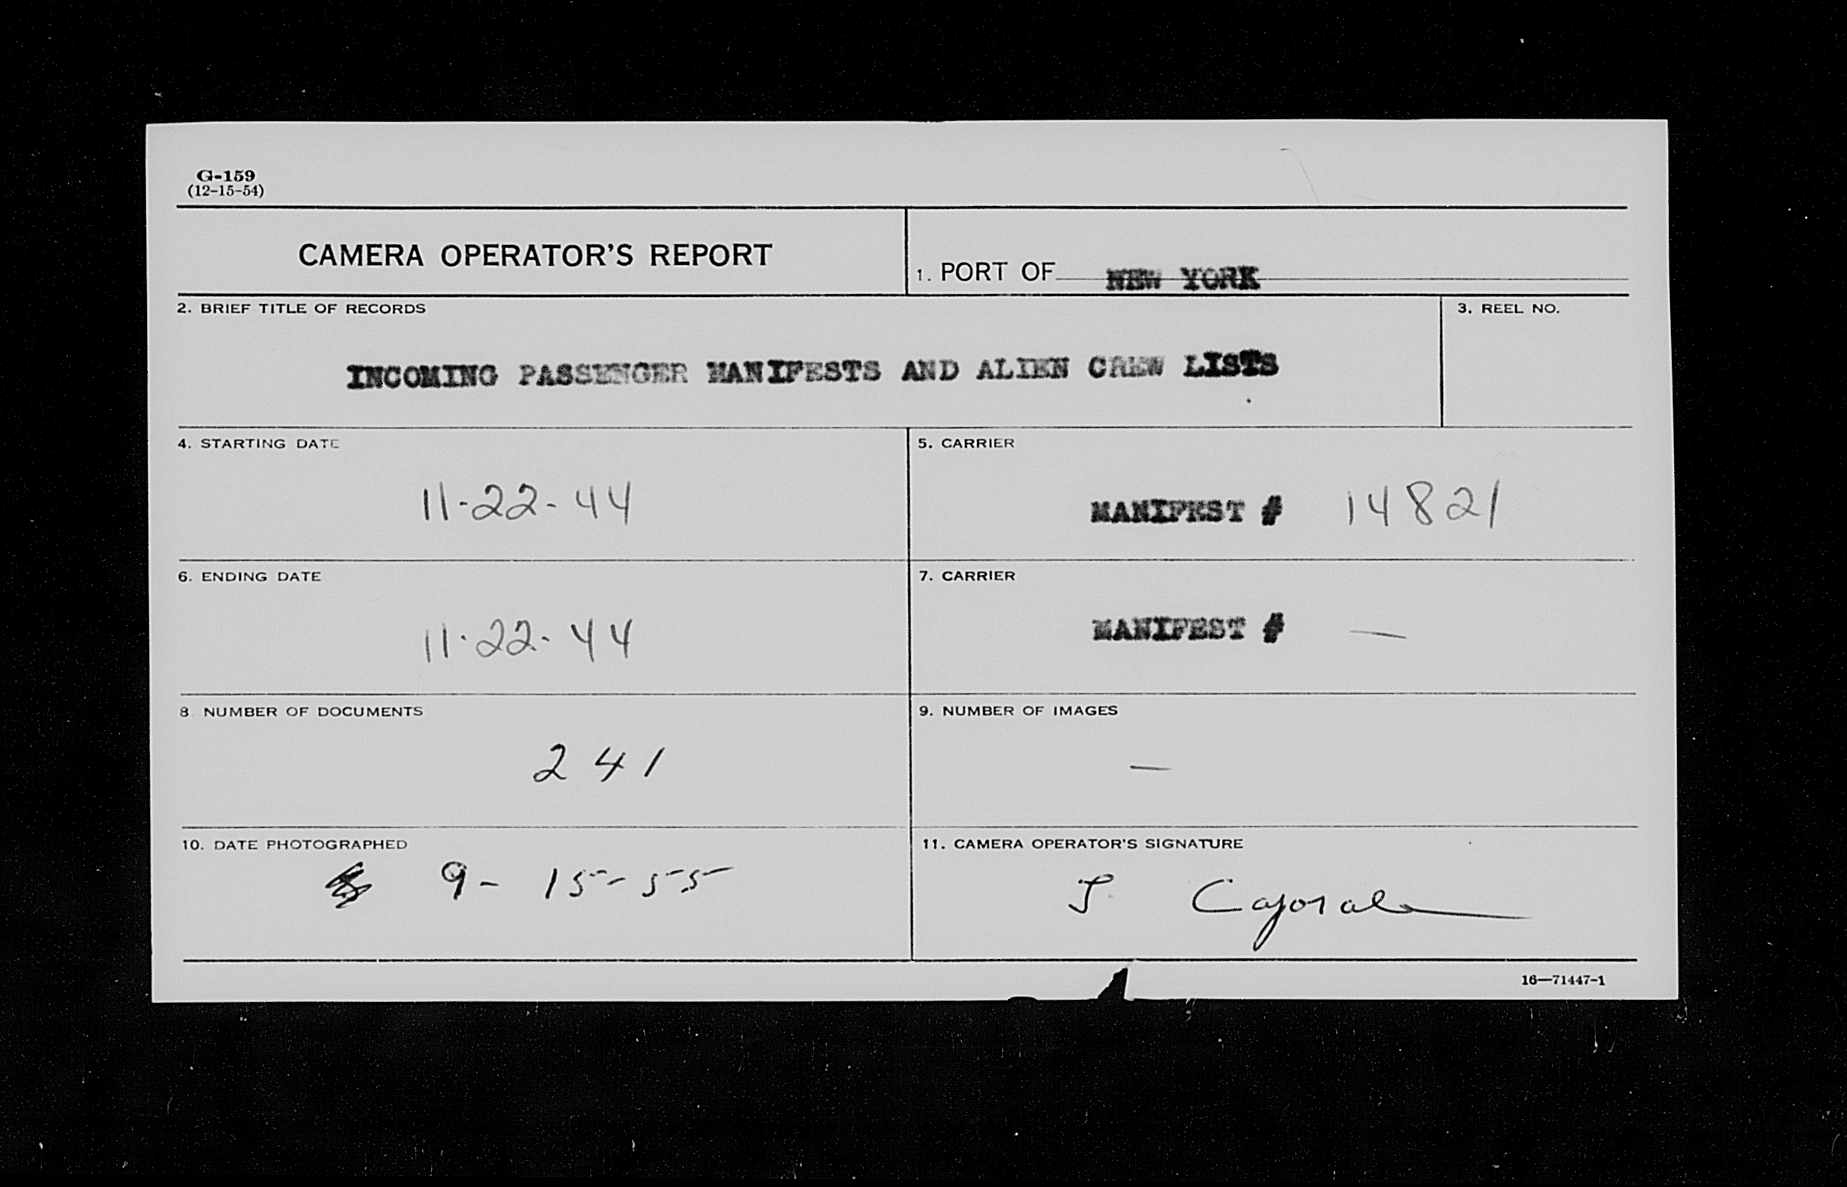 G-159
(12-15-54)
CAMERA OPERATOR'S REPORT
1. PORT OF NEW YORK
2. BRIEF TITLE OF RECORDS
3. REEL NO.
INCOMING PASSENGER MANIFESTS AND ALIEN CREW LISTS
4. STARTING DATE
11-22-44
5. CARRIER
MANIFEST # 14821
6. ENDING DATE
11-22-44
7. CARRIER
MANIFEST # —
8 NUMBER OF DOCUMENTS
241
9. NUMBER OF IMAGES
—
10. DATE PHOTOGRAPHED
9-15-55
11. CAMERA OPERATOR'S SIGNATURE
16—71447-1